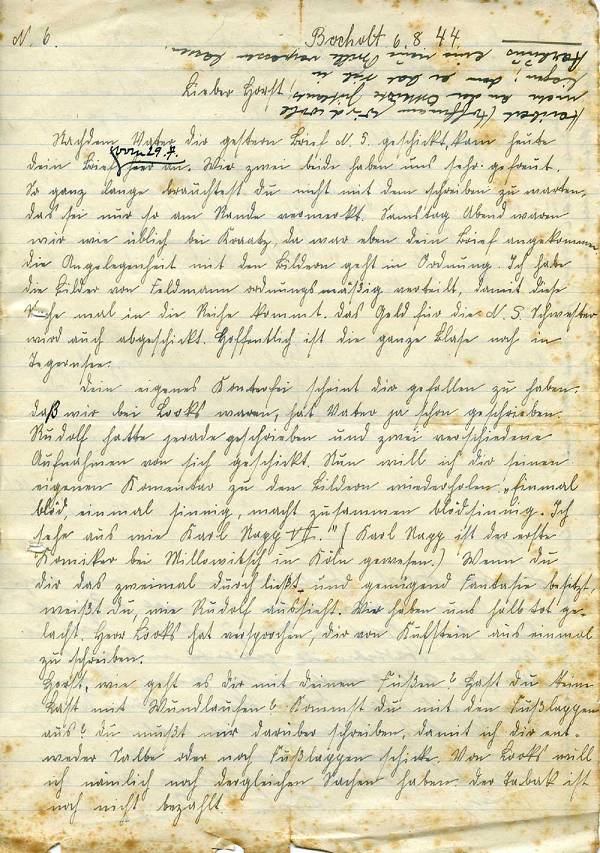 N. 6. Bocholt 6. 8. 44.
Lieber Horst!
Nachdem Vater dir gestern Brief N. 5. geschickt, kam heute
dein Brief hier an. Wir zwei beide haben uns sehr gefreut.
So ganz lange brauchtest du nicht mit dem schreiben zu warten,
das sei nur so am Rande vermerkt. Samstag Abend waren
wir wie üblich bei Kraatz, da war eben dein Brief angekommen
die Angelegenheit mit den Bildern geht in Ordnung. Ich habe
die Bilder von Feldmann ordnungsmäßig verteilt, damit diese
mal in die Reihe kommt. Das Geld für die N. S. Schwester
wird auch abgeschickt. Hoffentlich ist die ganze Blase noch in
Tegernsee.
Dein eigenes Konterfei scheint dir gefallen zu haben.
Daß wir bei Looks waren, hat Vater ja schon geschrieben.
Rudolf hatte gerade geschrieben und zwei verschiedene
Aufnahmen von sich geschickt. Nun will ich dir seinen
eigenen Komentar zu den Bildern wiederholen „Einmal
blöd, einmal sinnig, macht zusammen blödsinnig. Ich
sehe aus wie Karl Napp VII." (Karl Napp ist der erste
Komiker bei Millowitsch in Köln gewesen.) Wenn du
dir das zweimal durchließt und genügend Fantasie besitzt,
weißt du, wie Rudolf aussieht. Wir haben uns halb tot ge-
lacht. Herr Looks hat versprochen, dir von Kufstein aus einmal
zu schreiben.
Horst, wie geht es dir mit deinen Füßen? Hast du keine
Last mit Wundlaufen? Kommst du mit den Fußlappen
aus? du mußt mir darüber schreiben, damit ich dir ent-
weder Salbe oder noch Fußlappen schicke. Von Looks will
ich nämlich noch dergleichen Sachen haben. Der Tabak ist
noch nicht bezahlt